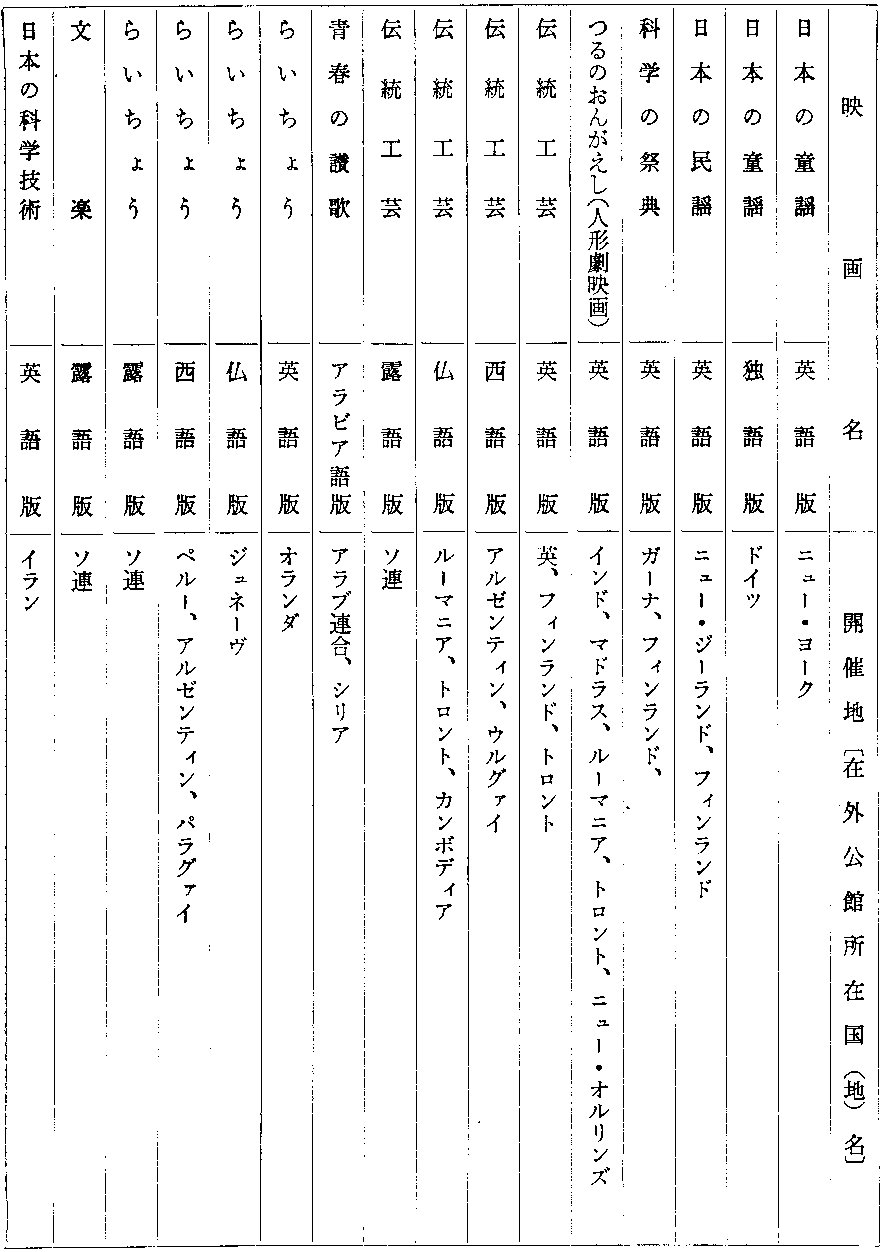 映画名 開催地〔在外公館所在国(地)名〕
日本の童謡 英語版 ニュー・ヨーク
日本の童謡 独語版 ドイツ
日本の民謡 英語版 ニュー・ジーランド、フィンランド
科学の祭典 英語版 ガーナ、フィンランド、
つるのおんがえし(人形劇映画) 英語版 インド、マドラス、ルーマニア、トロント、ニュー・オルリンズ
伝統工芸 英語版 英、フィンランド、トロント
伝統工芸 西語版 アルゼンティン、ウルグァイ
伝統工芸 仏語版 ルーマニア、トロント、カンボディア
伝統工芸 露語版 ソ連
青春の讃歌 アラビア語版 アラブ連合、シリア
らいちょう 英語版 オランダ
らいちょう 仏語版 ジュネーヴ
らいちょう 西語版 ペルー、アルゼンティン、パラグァイ
らいちょう 露語版 ソ連
文楽 露語版 ソ連
日本の科学技術 英語版 イラン